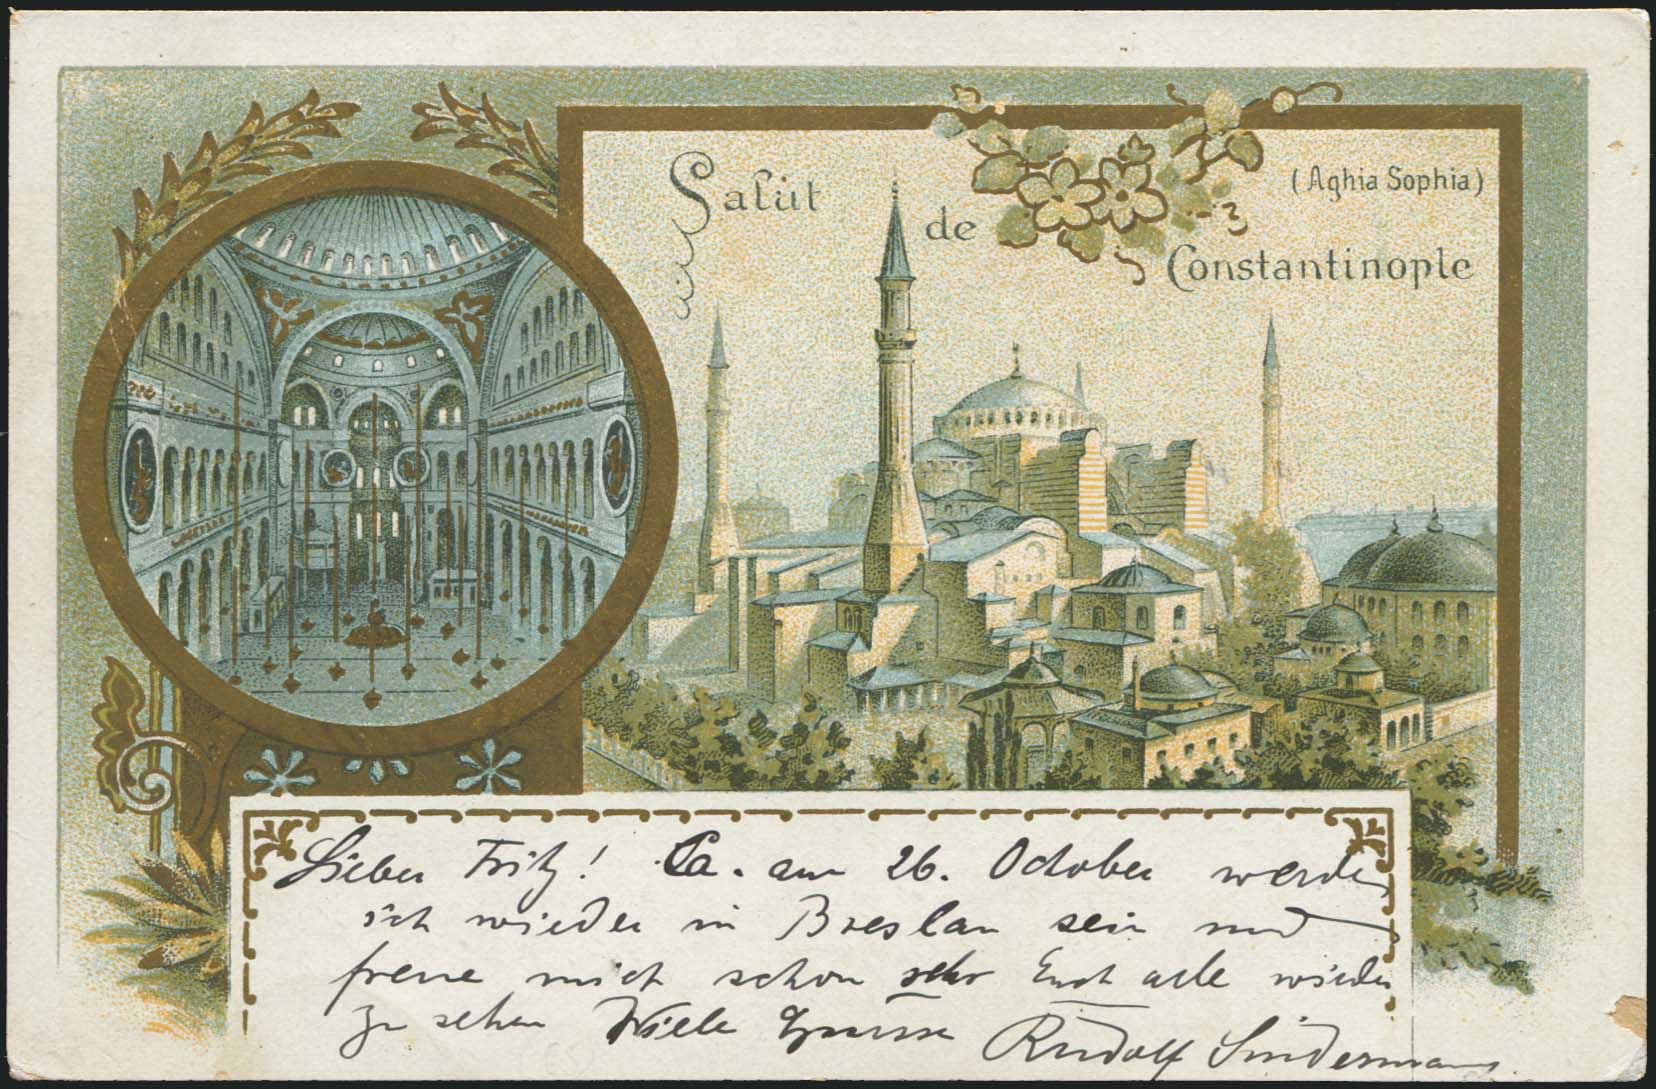 Salut
de
Constantinople
(Aghia Sophia)
Lieber Fritz! Ca. am 26. October werde
ich wieder in Breslau sein und
freue mich schon sehr Euch alle wieder
zu sehen Viele Grüsse Rudolf Sindermann